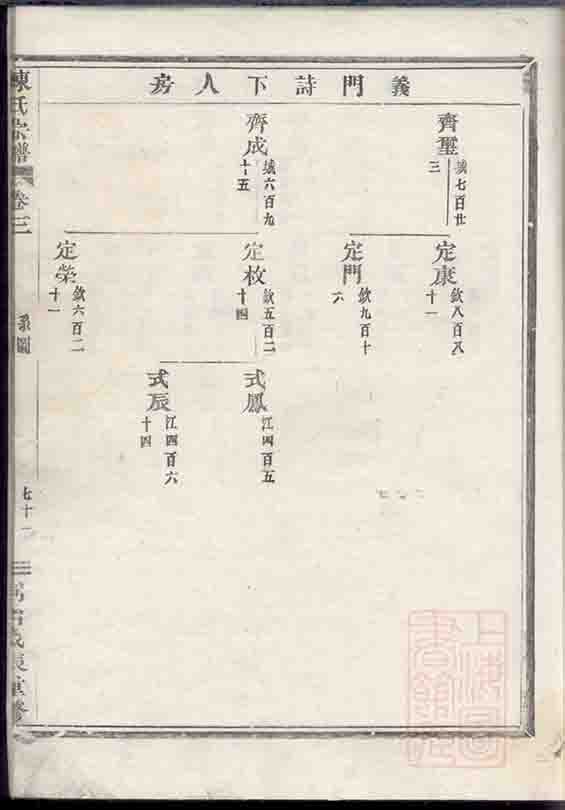 義門詩下人房
齊璽
號七百廿
三
定康
欽八百八
十一
定門
欽九百十
六
齊成
號六百九
十五
定枚
欽五百二
十四
式鳳
江四百五
式辰
江四百六
十四
定榮
欽六百二
十一
陳氏宗譜
卷三
系圖
七十一
上海圖書館藏